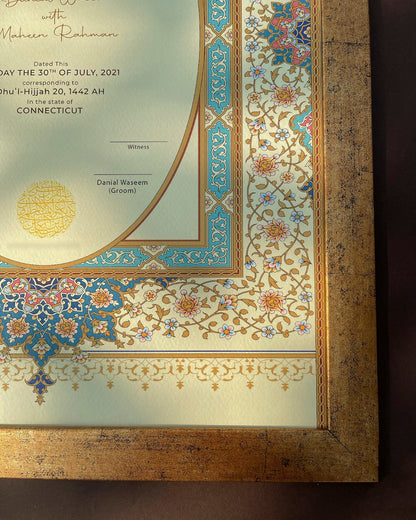 with
Maheen Rahman
Dated This
DAY THE 30TH OF JULY, 2021
corresponding to
Dhu'l-Hijjah 20, 1442 AH
In the state of
CONNECTICUT
Witness
Danial Waseem
(Groom)